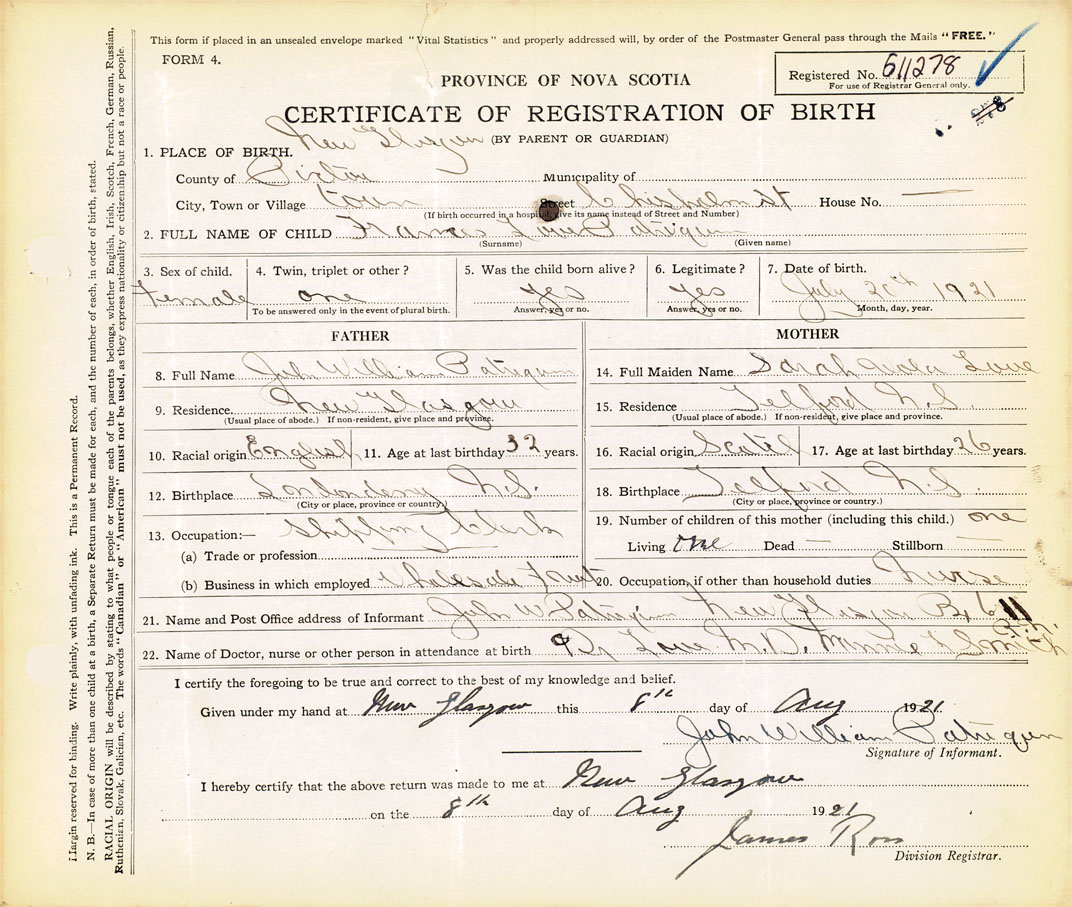 This form if placed in an unsealed envelope marked "Vital Statistics" and properly addressed will, by order of the Postmaster General pass through the Mails "FREE."
FORM 4.
Registered No. 611278
For use of Registrar General only.
PROVINCE OF NOVA SCOTIA
CERTIFICATE OF REGISTRATION OF BIRTH
(BY PARENT OR GUARDIAN)
1. PLACE OF BIRTH. New Glasgow
County of Pictou Municipality of
City, Town or Village town Street Chisholm St House No. —
(If birth occurred in a hospital, give its name instead of Street and Number)
2. FULL NAME OF CHILD Frances Love Patriquin
(Surname) (Given name)
3. Sex of child. 4. Twin, triplet or other? 5. Was the child born alive? 6. Legitimate? 7. Date of birth.
Female one yes yes July 20th 1921
To be answered only in the event of plural birth. Answer, yes or no. Answer, yes or no. Month, day, year.
FATHER
8. Full Name John William Patriquin
9. Residence. New Glasgow
(Usual place of abode.) If non-resident, give place and province.
10. Racial origin English 11. Age at last birthday 32 years.
12. Birthplace Londonderry N.S.
(City or place, province or country.)
13. Occupation:— Shipping Clerk
(a) Trade or profession
(b) Business in which employed Wholesale Fruit
MOTHER
14. Full Maiden Name Sarah Love
15. Residence Telford N.S.
(Usual place of abode.) If non-resident, give place and province.
16. Racial origin Scotch 17. Age at last birthday 26 years.
18. Birthplace Telford N.S
(City or place, province or country.)
19. Number of children of this mother (including this child.) one
Living one Dead — Stillborn —
20. Occupation, if other than household duties Nurse
21. Name and Post Office address of Informant John W Patriquin New Glasgow Bx 611
22. Name of Doctor, nurse or other person in attendance at birth Dr Love M.D. Minnie Smith R.N.
I certify the foregoing to be true and correct to the best of my knowledge and belief.
Given under my hand at New Glasgow this 8th day of Aug 1921
John William Patriquin
Signature of Informant.
I hereby certify that the above return was made to me at New Glasgow
on the 8th day of Aug 1921
James Ross
Division Registrar.
Margin reserved for binding. Write plainly, with unfading ink. This is a Permanent Record.
N. B.—In case of more than one child at a birth, a Separate Return must be made for each, and the number of each, in order of birth, stated.
RACIAL ORIGIN will be described by stating to what people or tongue each of the parents belongs, whether English, Irish, Scotch, French, German, Russian,
Ruthenian, Slovak, Galician, etc. The words "Canadian" or "American" must not be used, as they express nationality or citizenship but not a race or people.